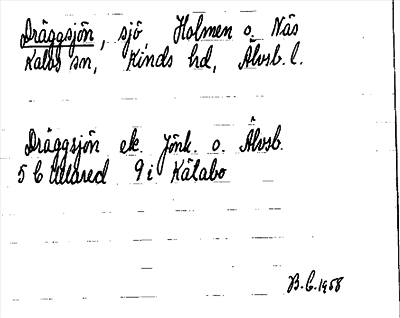 Dräggsjön, sjö, Holmen o. Näs
Kalvs sn, Kinds hd, Älvsb. l.
Dräggsjön ek. Jönk. o. Älvsb.
5 C Ullared 9 i Kätabo
B.C. 1958